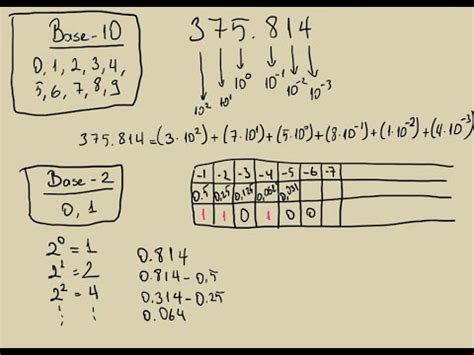 Base-10
0, 1, 2, 3, 4,
5, 6, 7, 8, 9
375.814
10² 10¹ 10⁰ 10⁻¹ 10⁻² 10⁻³
375.814=(3·10²)+(7·10¹)+(5·10⁰)+(8·10⁻¹)+(1·10⁻²)+(4·10⁻³)
Base-2
0, 1
-1 -2 -3 -4 -5 -6 -7
0,5 0,25 0,125 0,062 0,031
1 1 0 1 0 0
2⁰ = 1
2¹ = 2
2² = 4
⋮ ⋮
0.814
0.814-0,5
0.314-0.25
0.064